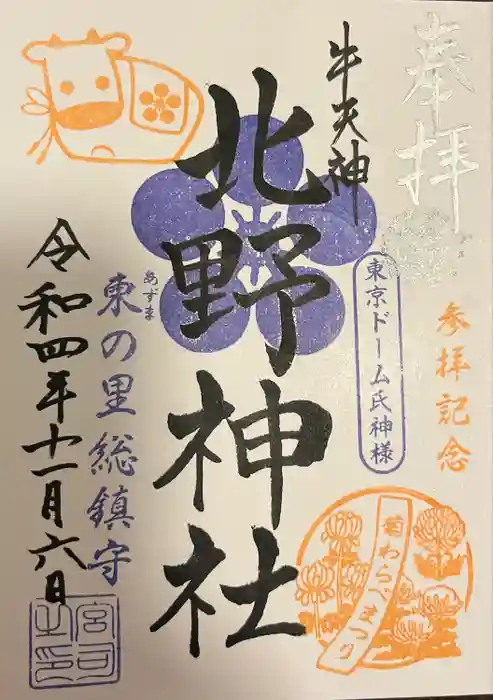 奉拝
参拝記念
菊わらべまつり
東京ドーム氏神様
牛天神
北野神社
東の里総鎮守
あずま
令和四年十一月六日
宮司之印